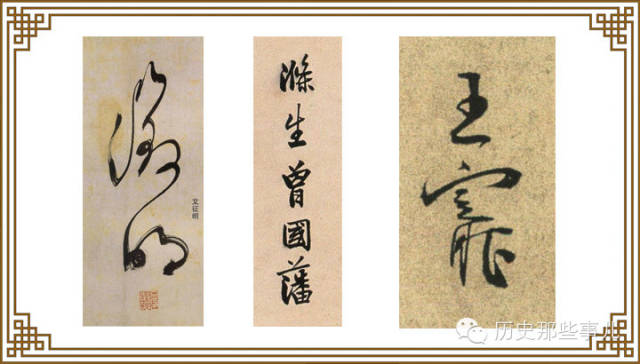 徵明
文征明
滌生曾國藩
王寵
历史那些事儿